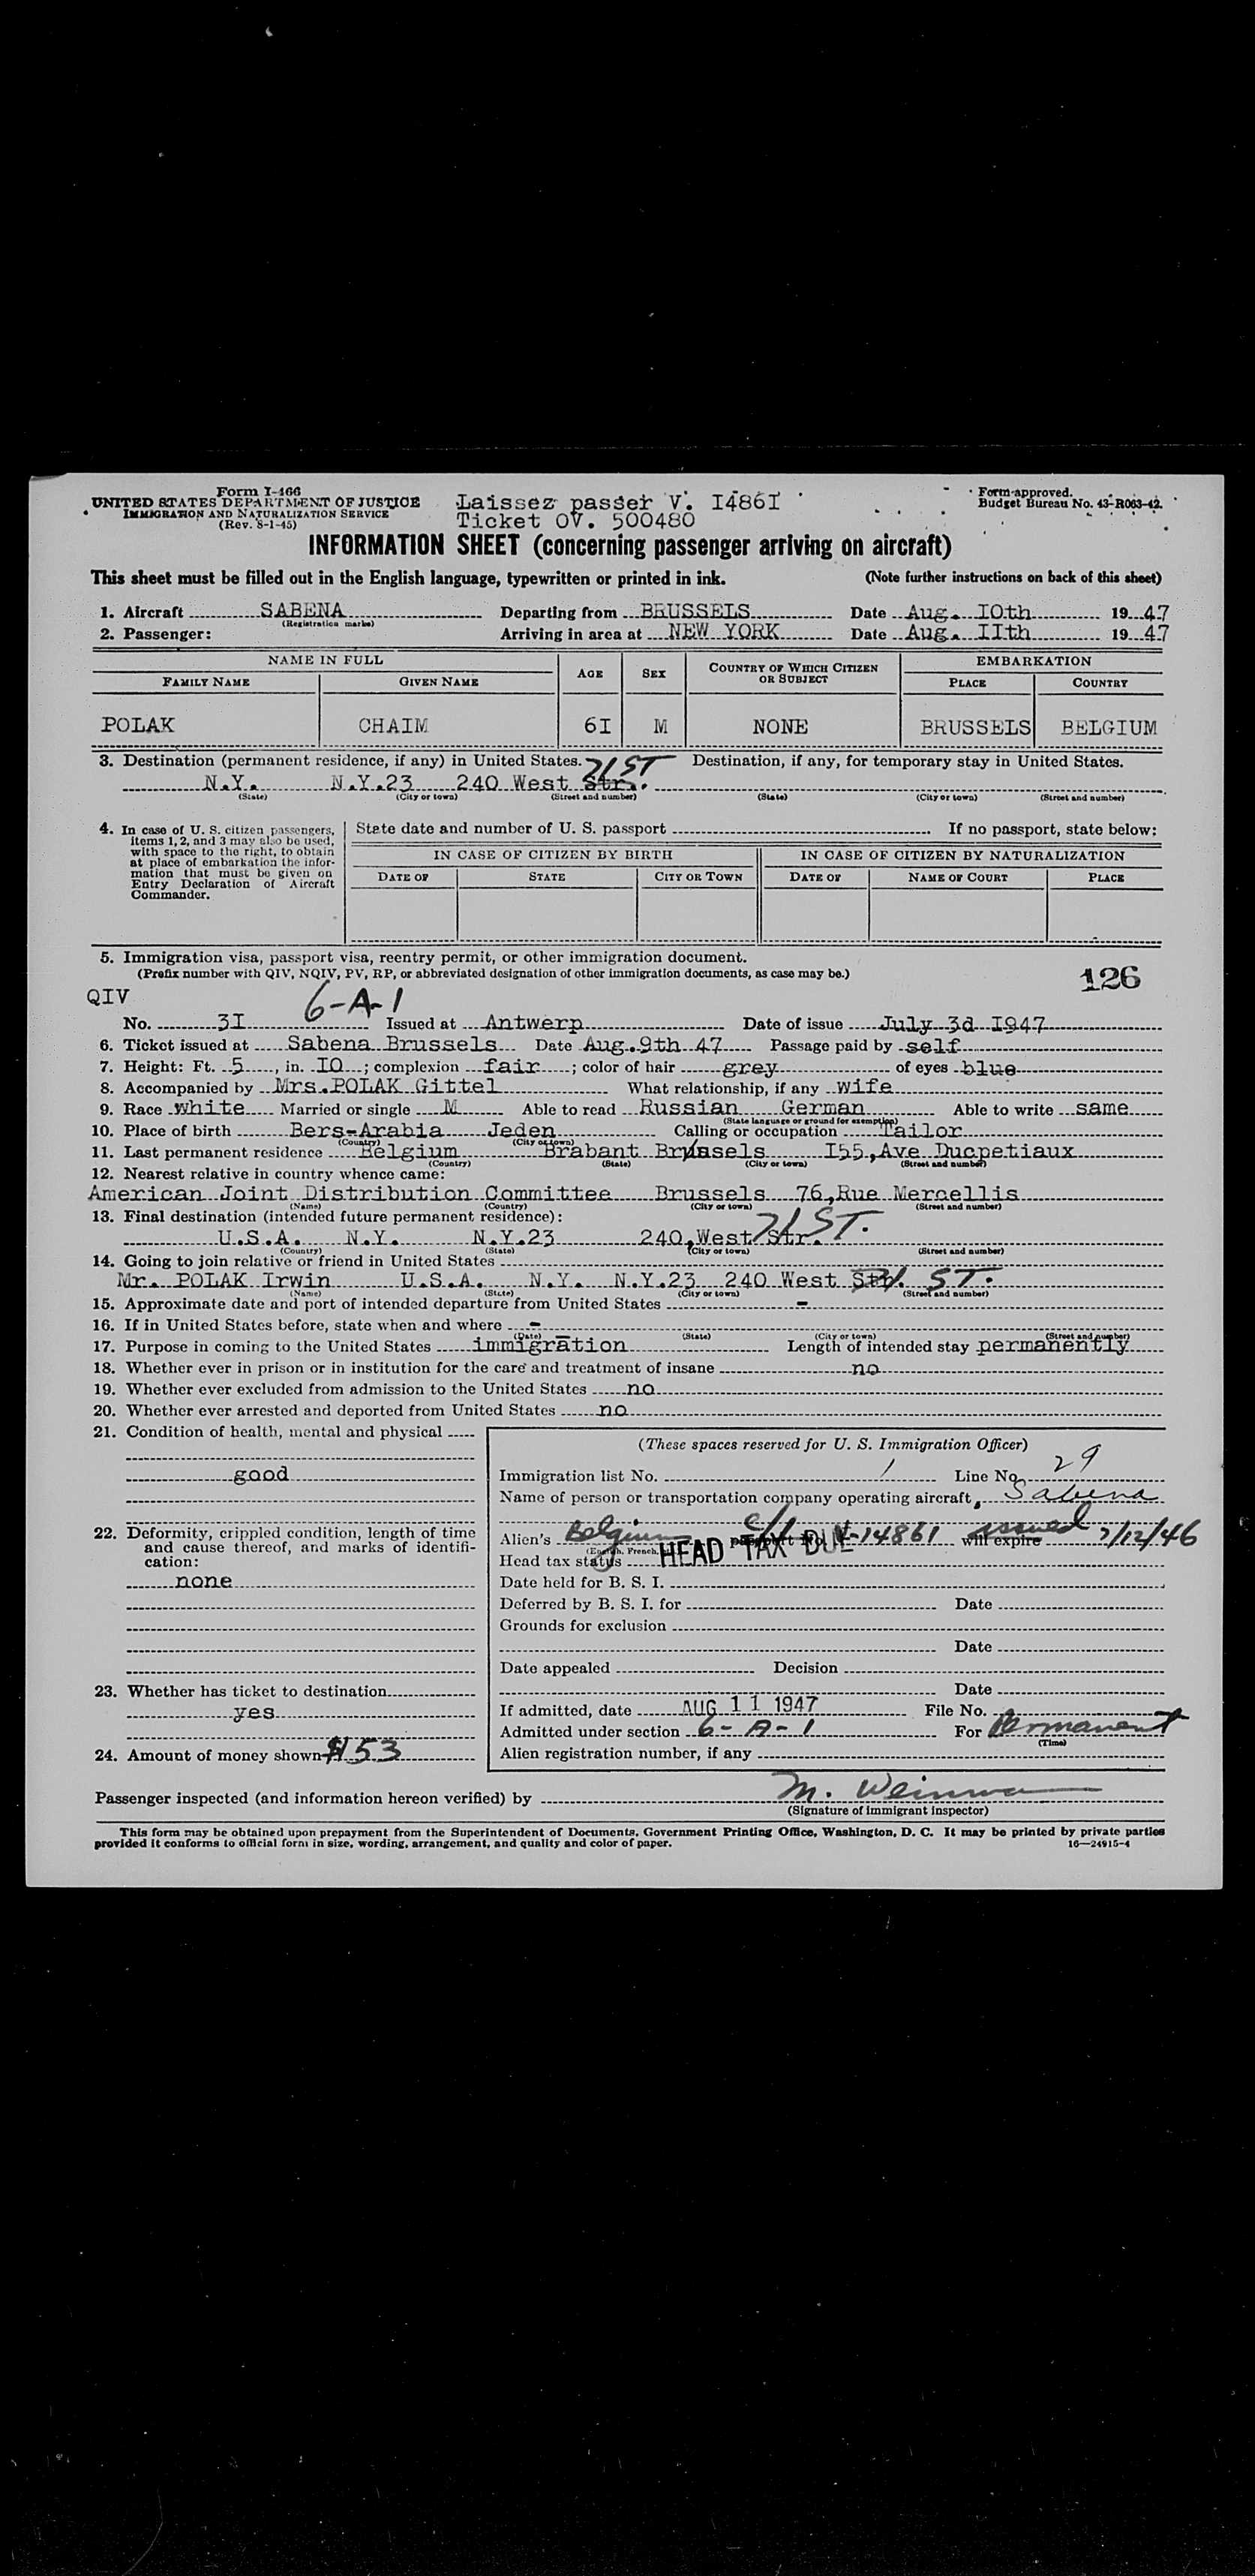 Form I-466
UNITED STATES DEPARTMENT OF JUSTICE
IMMIGRATION AND NATURALIZATION SERVICE
(Rev. 8-1-45)
Laissez passer V. I486I
Ticket OV. 500480
Form approved.
Budget Bureau No. 43-R063-42.
INFORMATION SHEET (concerning passenger arriving on aircraft)
This sheet must be filled out in the English language, typewritten or printed in ink. (Note further instructions on back of this sheet)
1. Aircraft SABENA Departing from BRUSSELS Date Aug. IOth 1947
(Registration marks)
2. Passenger: Arriving in area at NEW YORK Date Aug. IIth 1947
NAME IN FULL AGE SEX COUNTRY OF WHICH CITIZEN OR SUBJECT EMBARKATION
FAMILY NAME GIVEN NAME PLACE COUNTRY
POLAK CHAIM 6I M NONE BRUSSELS BELGIUM
3. Destination (permanent residence, if any) in United States. Destination, if any, for temporary stay in United States.
N.Y. N.Y.23 240 West Str. 71 ST
(State) (City or town) (Street and number) (State) (City or town) (Street and number)
4. In case of U. S. citizen passengers, items 1, 2, and 3 may also be used, with space to the right, to obtain at place of embarkation the information that must be given on Entry Declaration of Aircraft Commander.
State date and number of U. S. passport If no passport, state below:
IN CASE OF CITIZEN BY BIRTH IN CASE OF CITIZEN BY NATURALIZATION
DATE OF STATE CITY OR TOWN DATE OF NAME OF COURT PLACE
5. Immigration visa, passport visa, reentry permit, or other immigration document.
(Prefix number with QIV, NQIV, PV, RP, or abbreviated designation of other immigration documents, as case may be.)
126
QIV 6-A-1
No. 3I Issued at Antwerp Date of issue July 3d I947
6. Ticket issued at Sabena Brussels Date Aug.9th 47 Passage paid by self
7. Height: Ft. 5, in. IO; complexion fair; color of hair grey of eyes blue
8. Accompanied by Mrs.POLAK Gittel What relationship, if any wife
9. Race white Married or single M Able to read Russian German Able to write same
(State language or ground for exemption)
10. Place of birth Bers-Arabia Jeden Calling or occupation Tailor
(Country) (City or town)
11. Last permanent residence Belgium Brabant Brussels I55,Ave Ducpetiaux
(Country) (State) (City or town) (Street and number)
12. Nearest relative in country whence came:
American Joint Distribution Committee Brussels 76,Rue Mercellis
(Name) (Country) (City or town) (Street and number)
13. Final destination (intended future permanent residence):
U.S.A. N.Y. N.Y.23 240,West Str. 71 ST.
(Country) (State) (City or town) (Street and number)
14. Going to join relative or friend in United States
Mr. POLAK Irwin U.S.A. N.Y. N.Y.23 240 West Str. 71. ST.
(Name) (State) (City or town) (Street and number)
15. Approximate date and port of intended departure from United States -
16. If in United States before, state when and where -
(Date) (State) (City or town) (Street and number)
17. Purpose in coming to the United States immigration Length of intended stay permanently
18. Whether ever in prison or in institution for the care and treatment of insane no
19. Whether ever excluded from admission to the United States no
20. Whether ever arrested and deported from United States no
21. Condition of health, mental and physical
good
22. Deformity, crippled condition, length of time and cause thereof, and marks of identification:
none
23. Whether has ticket to destination
yes
24. Amount of money shown $153
(These spaces reserved for U. S. Immigration Officer)
Immigration list No. 1 Line No. 29
Name of person or transportation company operating aircraft, Sabena
Alien's Belgium passport No. 14861 will expire issued 7/12/46
(English, French,
Head tax status HEAD TAX DUE
Date held for B. S. I.
Deferred by B. S. I. for Date
Grounds for exclusion
Date
Date appealed Decision
Date
If admitted, date AUG 11 1947 File No.
Admitted under section 6-A-1 For Permanent
(Time)
Alien registration number, if any
Passenger inspected (and information hereon verified) by M.
(Signature of immigrant inspector)
This form may be obtained upon prepayment from the Superintendent of Documents, Government Printing Office, Washington, D. C. It may be printed by private parties
provided it conforms to official form in size, wording, arrangement, and quality and color of paper. 16—24915-4